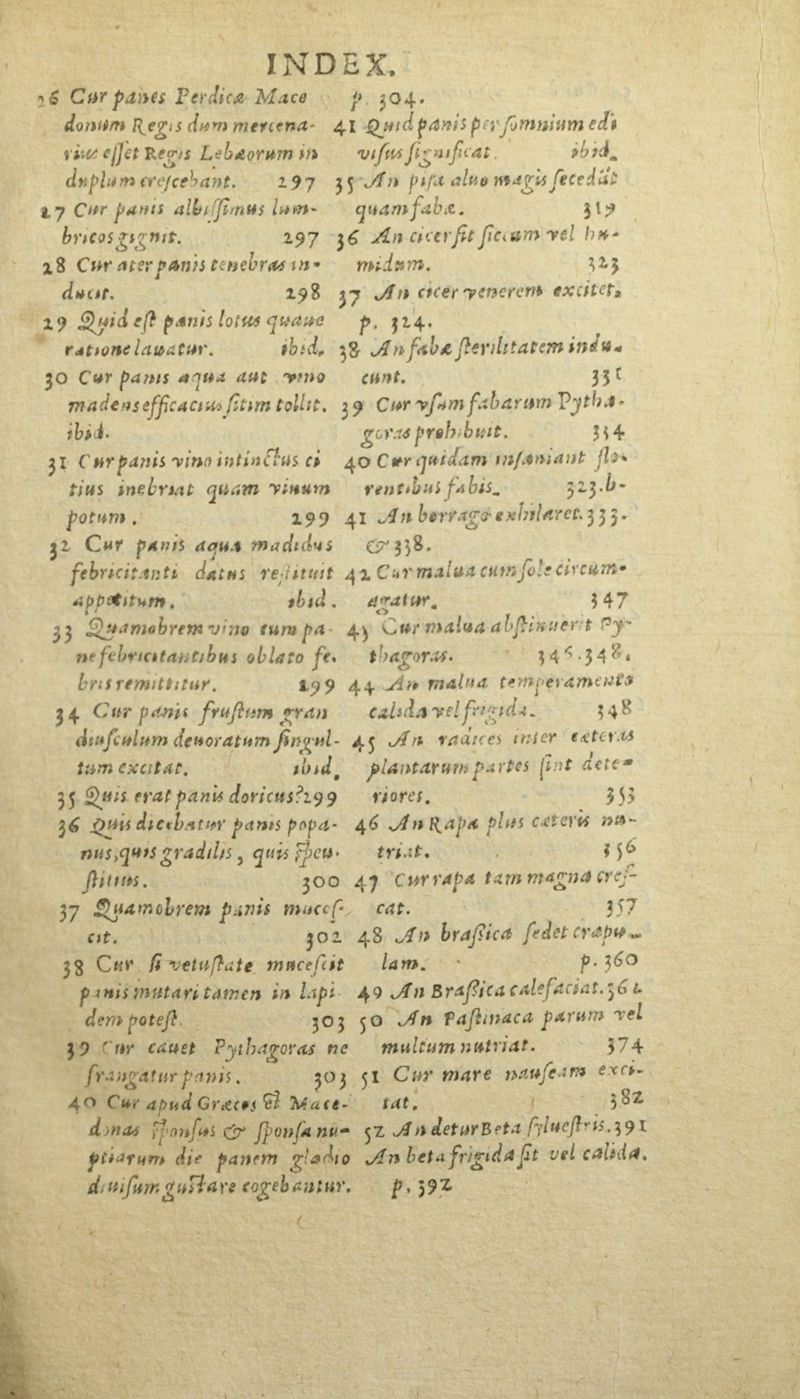 INDEX.
26 Cur panes Perdicæ Mace
donum Regis dum mercena-
riæ esset Regis Lebæorum in
duplum crescebant. 297
27 Cur panis albissimus lum-
bricos gignit. 297
28 Cur ater panis tenebras in-
ducit. 298
29 Quid est panis lotus quaue
ratione lauatur. ibid.
30 Cur panis aqua aut vino
madens efficacius sitim tollit.
ibid.
31 Cur panis vino intinctus ci
tius inebriat quam vinum
potum. 299
32 Cur panis aqua madidus
febricitanti datus restituit
appetitum. ibid.
33 Quamobrem vino cum pa-
ne febricitantibus oblato fe-
bris remittitur. 199
34 Cur panis frustum gran
diusculum deuoratum singul-
tum excitat. ibid.
35 Quis erat panis doricus? 299
36 Quis dicebatur panis popa-
nus, quis gradilis, quis speu-
stitus. 300
37 Quamobrem panis mucef-
cit. 302
38 Cur si vetustate mucescit
panis mutari tamen in lapi
dem potest. 303
39 Cur cauet Pythagoras ne
frangatur panis. 303
40 Cur apud Græcos & Mace-
donas sponsus & sponsa nu-
ptiarum die panem gladio
diuisum gustare cogebantur.
p. 304.
41 Quid panis per somnium edi
visus significat. ibid.
35 An pisa aluo magis secedat
quam fabæ. 319
36 An cicer sit siccum vel hu-
midum. 323
37 An cicer venerem excitet.
p. 324.
38 An fabæ sterilitatem indu-
cunt. 331
39 Cur vsum fabarum Pytha-
goras prohibuit. 334
40 Cur quidam insaniant flo-
rentibus fabis. 323.b-
41 An borrago exhilaret. 333.
& 338.
42 Cur malua cum sole circum-
agatur. 347
43 Cur malua abstinuerit Py-
thagoras. 346.348.
44 An malua temperamentis
calida vel frigida. 348
45 An radices inter cæteras
plantarum partes sint dete-
riores. 353
46 An Rapa plus cæteris nu-
triat. 356
47 Cur rapa tam magna cres-
cat. 357
48 An brassica sedet crapu-
lam. p. 360
49 An Brassica calefaciat. 361.
50 An Pastinaca parum vel
multum nutriat. 374
51 Cur mare nauseam exci-
tat. 382
52 An detur Beta syluestris. 391
An beta frigida sit vel calida.
p. 392